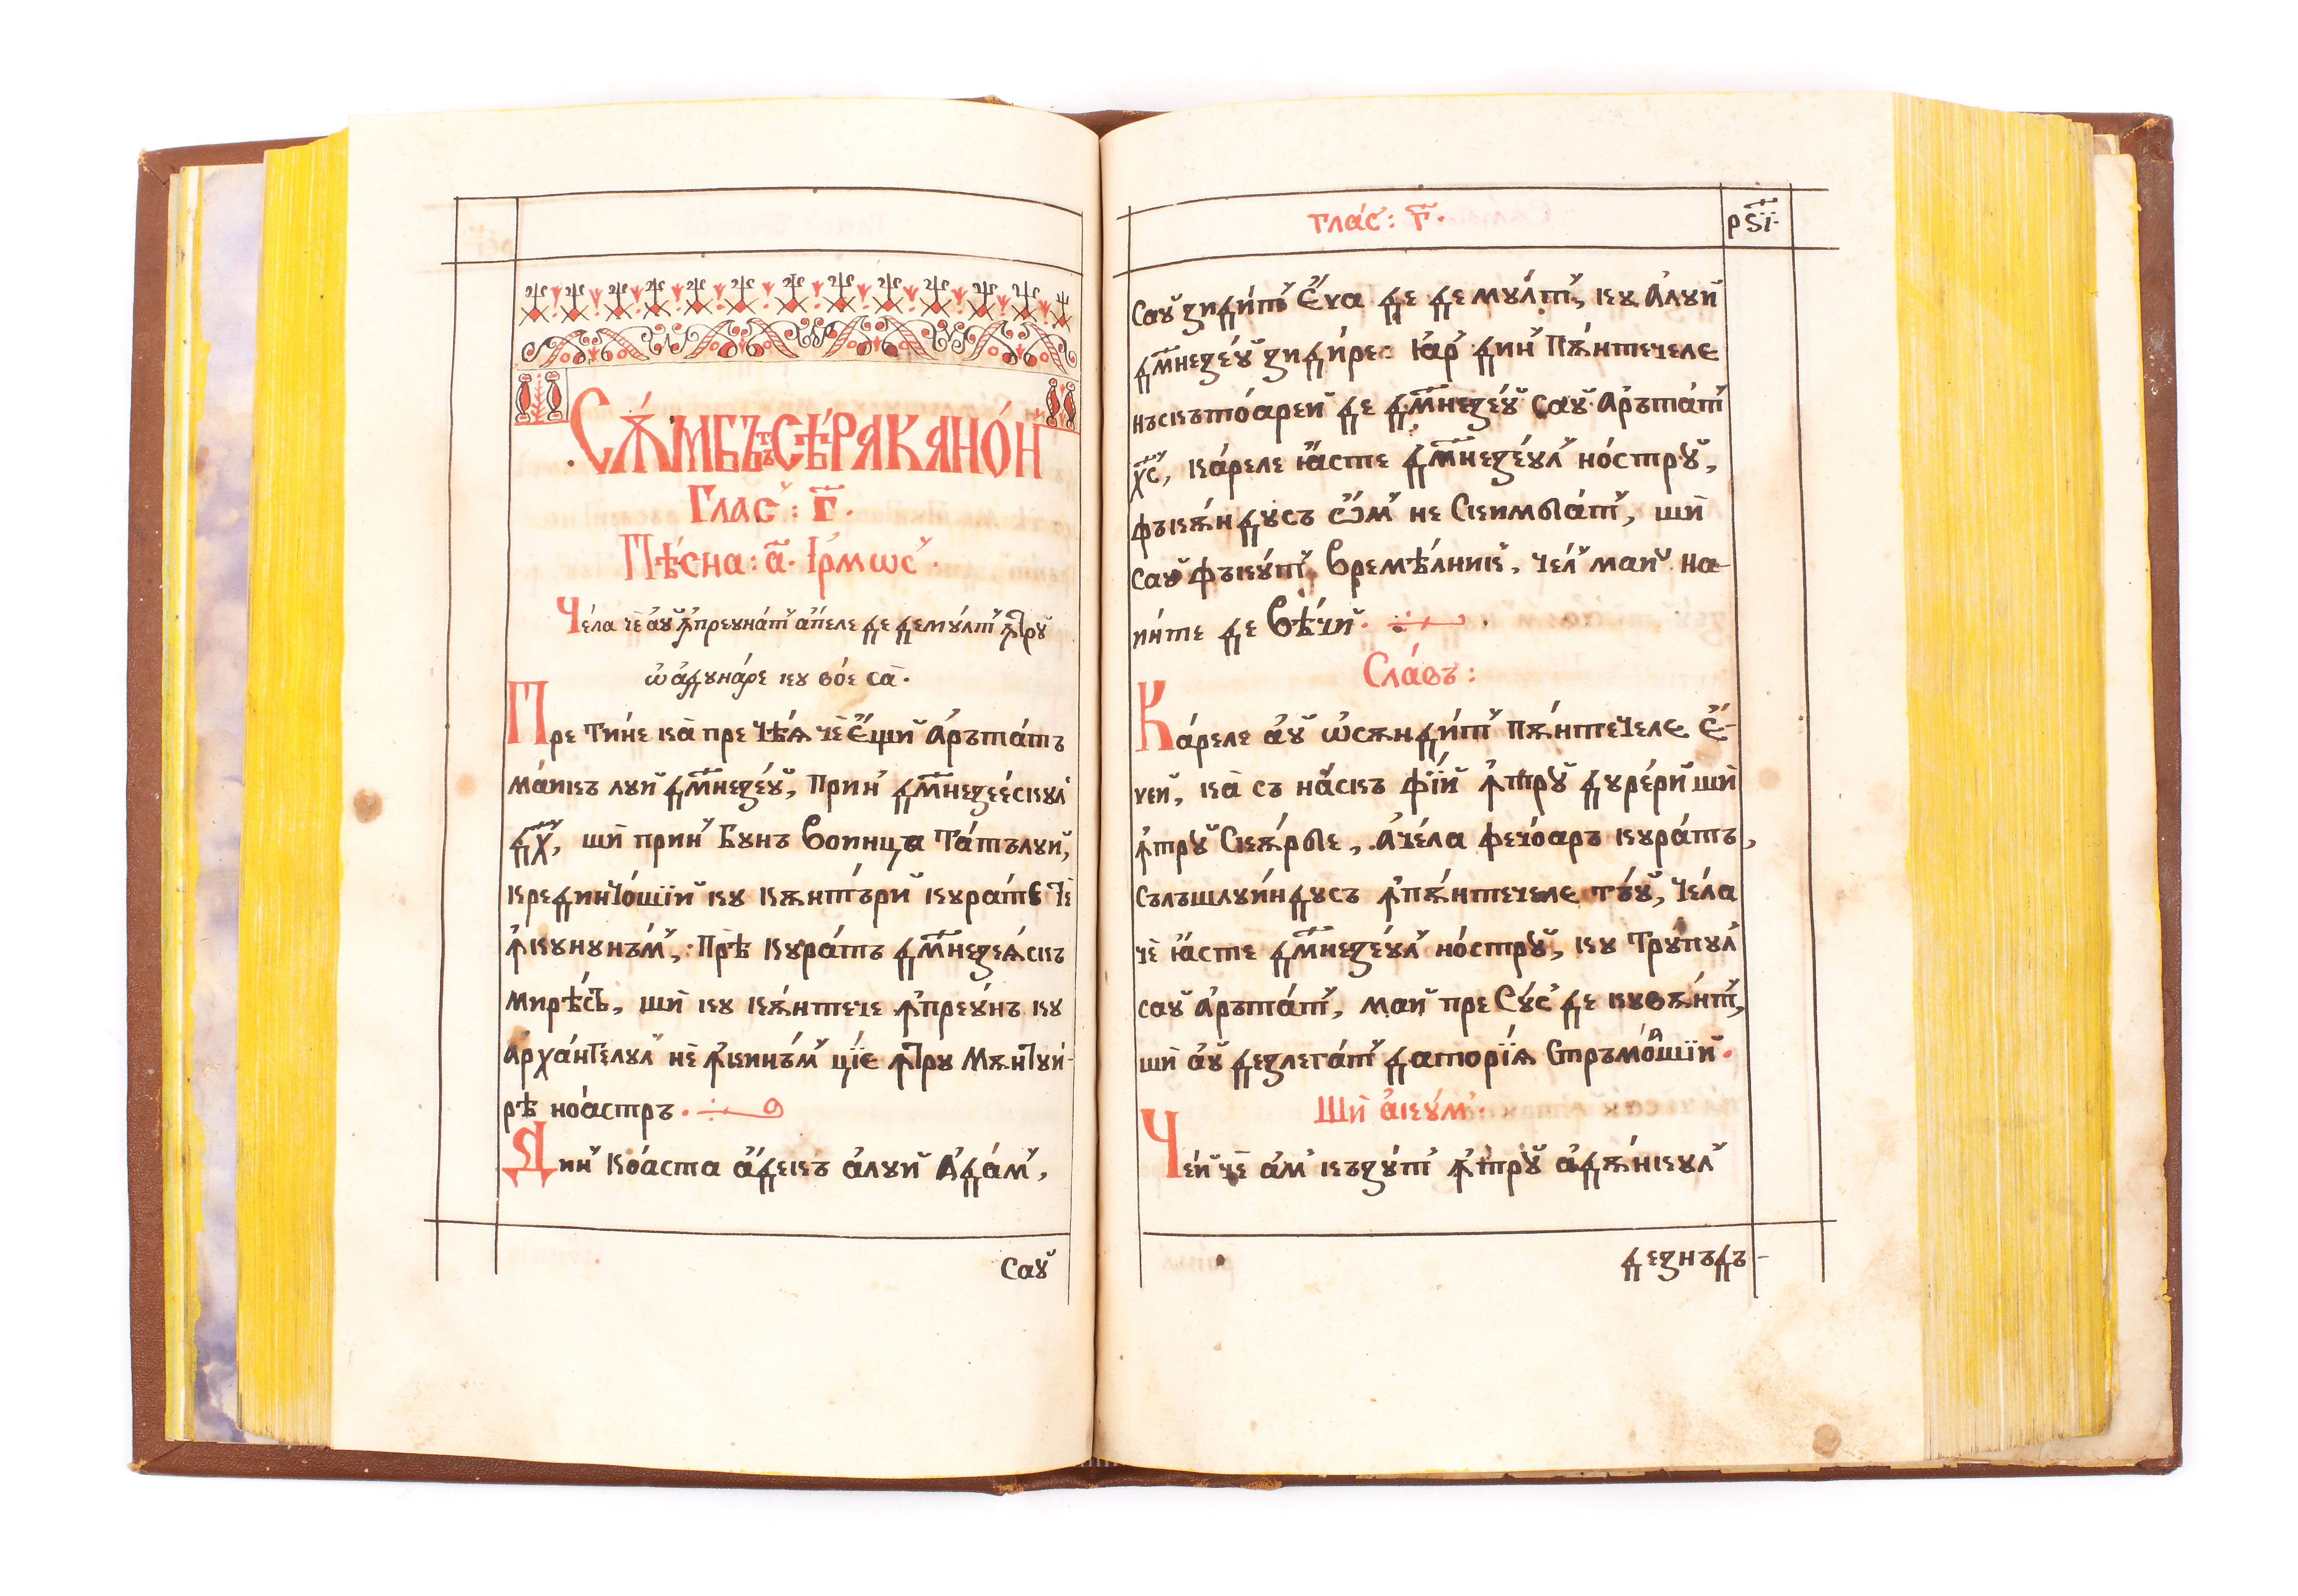 Сѫ́мбъ:тъ Сѣ́ра Канѡ́н
Глас̾: г҃.
Пѣ́сна: а҃. Ірмѡс̾.
Че́ла чѐ аў ꙟпреуна́т̾ а́пеле де демꙋ́лт̾ ꙟтрꙋ̆
ѡ҆ адꙋна́ре кꙋ во́е са̀.
Пре Ти́не ка̀ пре Чѣѧ чѐ є҆́щи а҆рътатъ
ма́икъ лꙋй дм҃незе́ꙋ̆, прин̾ дм҃незее́скꙋл
дх҃, шѝ прин̾ бꙋнъ воинца Та́тълꙋй,
крединчо́шїй кꙋ кѫнтъ́рй кꙋрате чѐ
ꙟкꙋнꙋнъ́м̾, Прѣ кꙋра́тъ дм҃незеѧ́скъ
мирѣ́съ, шѝ кꙋ кѫ́нтече ꙟпреꙋ́нъ кꙋ
а҆рха́нгелꙋл̾ нѐ ꙟкинъ́м̾ ці́е ꙟтрꙋ Мѫнтꙋи-
рѣ ноа́стръ.
Дин̾ Коа́ста а҆́декъ а҆лꙋй А҆да́м̾,
саꙋ̆
глас̾: г҃.
рѕ҃і
саꙋ̆ зиди́т̾ Є҆́ѵа де демꙋ́лт̾, кꙋ а҆лꙋй
дм҃незе́ꙋ̆ зиди́ре: Ꙗ҆р̾ дин̾ Пѫ́нтечеле
нъскъто́арей де дм҃незе́ꙋ̆ саꙋ̆ а҆ръта́т̾
хс҃, ка́реле ꙗ҆́сте дм҃незе́ꙋл̾ но́стрꙋ̆,
фъкѫ́ндꙋсъ ѡ҆́м̾ не скимба́т̾, шѝ
саꙋ̆ фъкꙋ́т̾ времѣ́лник̾, че́л̾ май на-
и́нте де вѣ́чй.
Сла́въ:
Ка́реле а́ꙋ̆ ѡ҆сѫнди́т̾ пѫ́нтечеле Є҆́-
ѵей, ка̀ съ на́скъ фі́й ꙟтрꙋ̆ дꙋре́рй шѝ
ꙟтрꙋ̆ скѫ́рбе, А҆че́ла фечо́аръ кꙋра́тъ,
сълъшлꙋи́ндꙋсъ ꙟпѫ́нтечеле тъ́ꙋ̆, че́ла
чѐ ꙗ҆́сте дм҃незе́ꙋл̾ но́стрꙋ̆, кꙋ трꙋ́пꙋл̾
саꙋ̆ а҆ръта́т̾, май пре сꙋ́с̾ де кꙋвѫ́нт̾,
шѝ а́ꙋ̆ дезлега́т̾ датори́ѧ стръмо́шїй.
Шѝ акꙋ́м̾.
Че́й чѐ а́м̾ къзꙋ́т̾ ꙟтрꙋ̆ адѫ́нкꙋл̾
дезнъдъ-